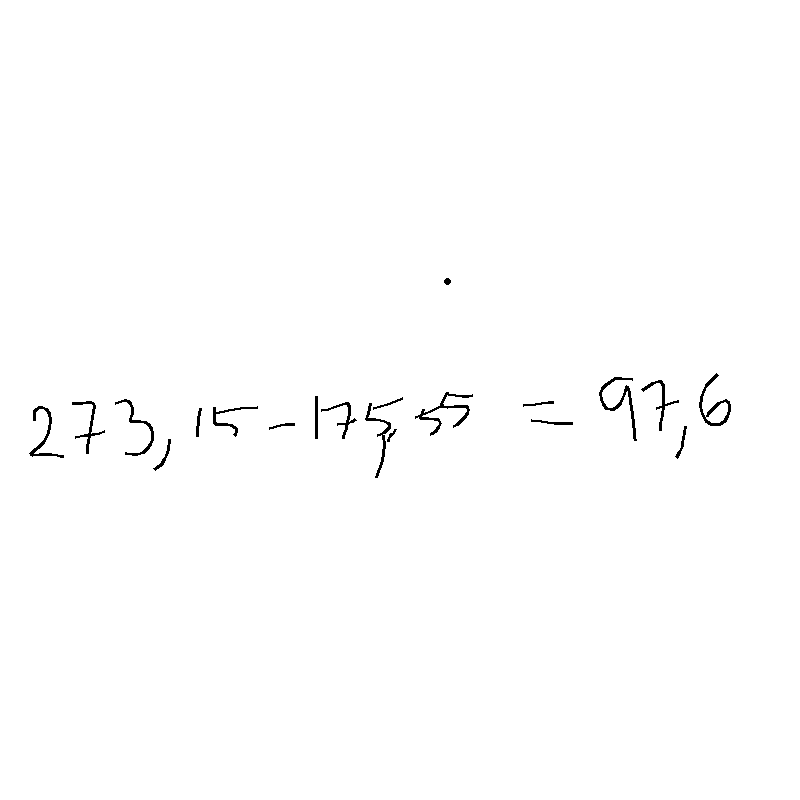 273,15-175,55 = 97,6